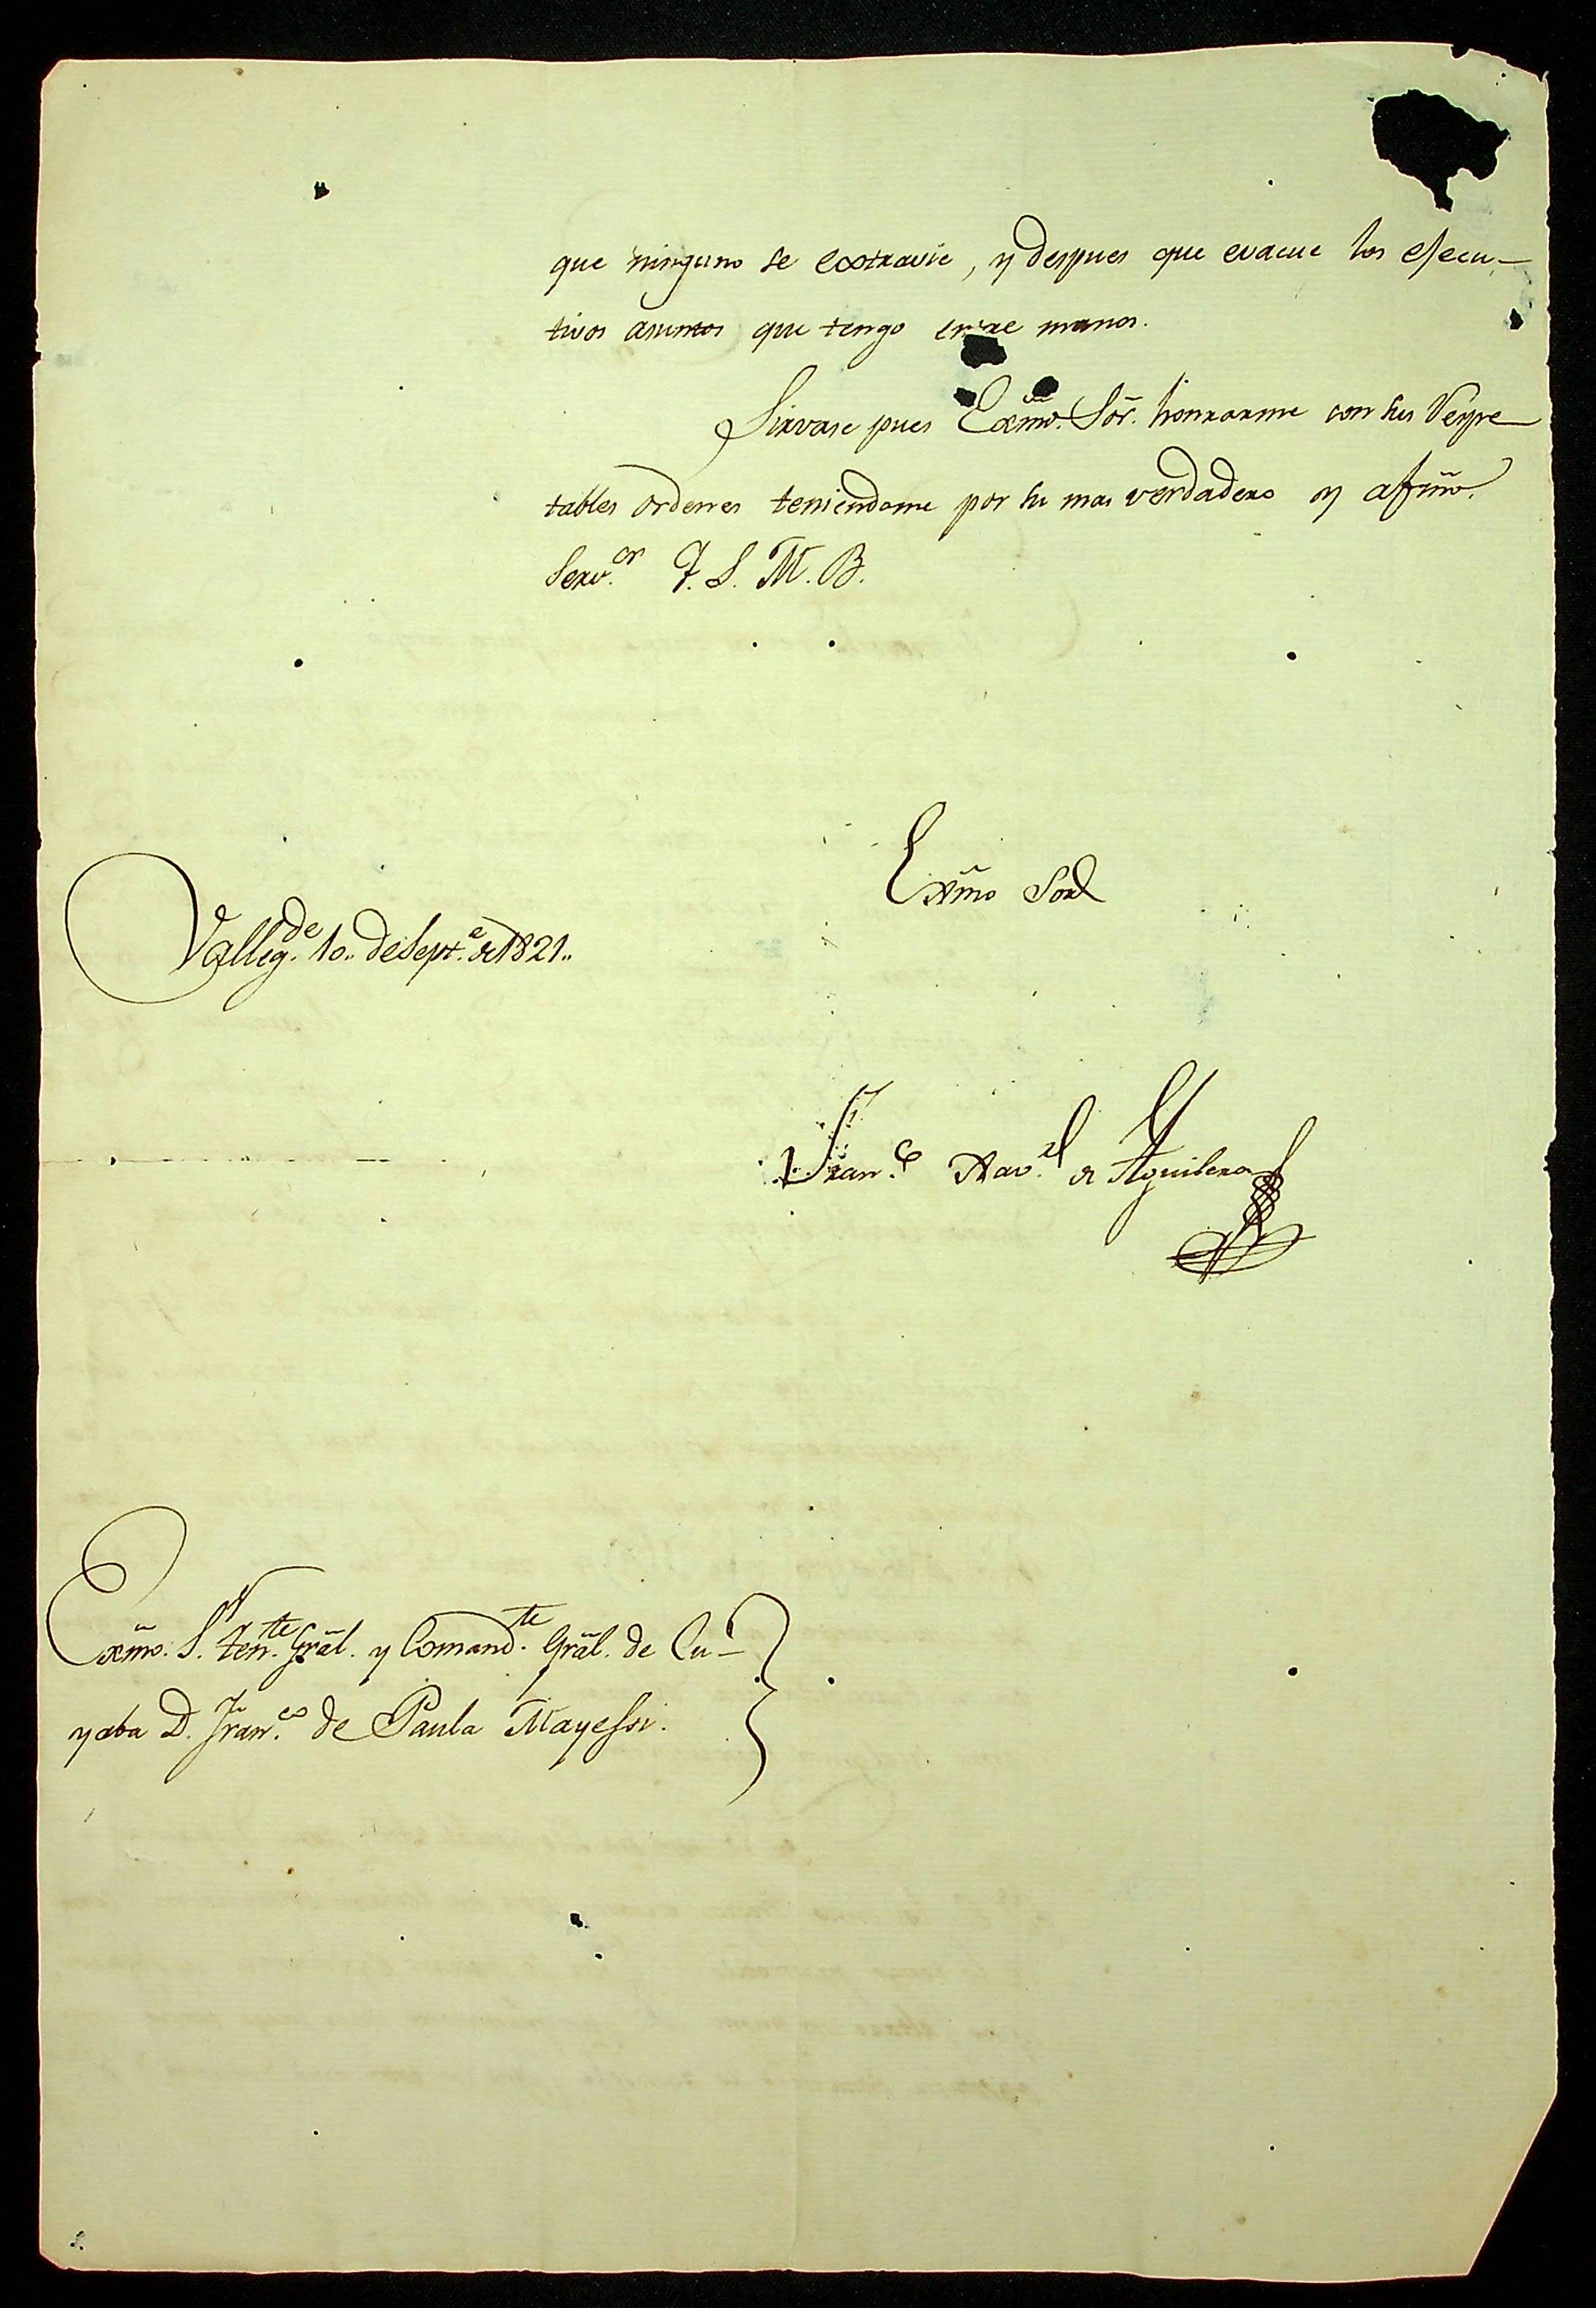 que ninguno se extravie, y despues que evacue los ejecu-
tivos asuntos que tengo entre manos.
Sirvase pues Exmõ. Sõr. honrarme con sus Respe-
tables ordenes teniendome por su mas verdadero y afmõ.
Serv.or Q. S. M. B.
Exmõ Sor
Valleg.de 10,, de Sept.e de 1821,,
Fran.co Xav.el de Aguilera
Exmõ. S.r ten.te Grãl. y Comand.te Grãl. de Cu-
yaba D. Fran.co de Paula Mayessi.